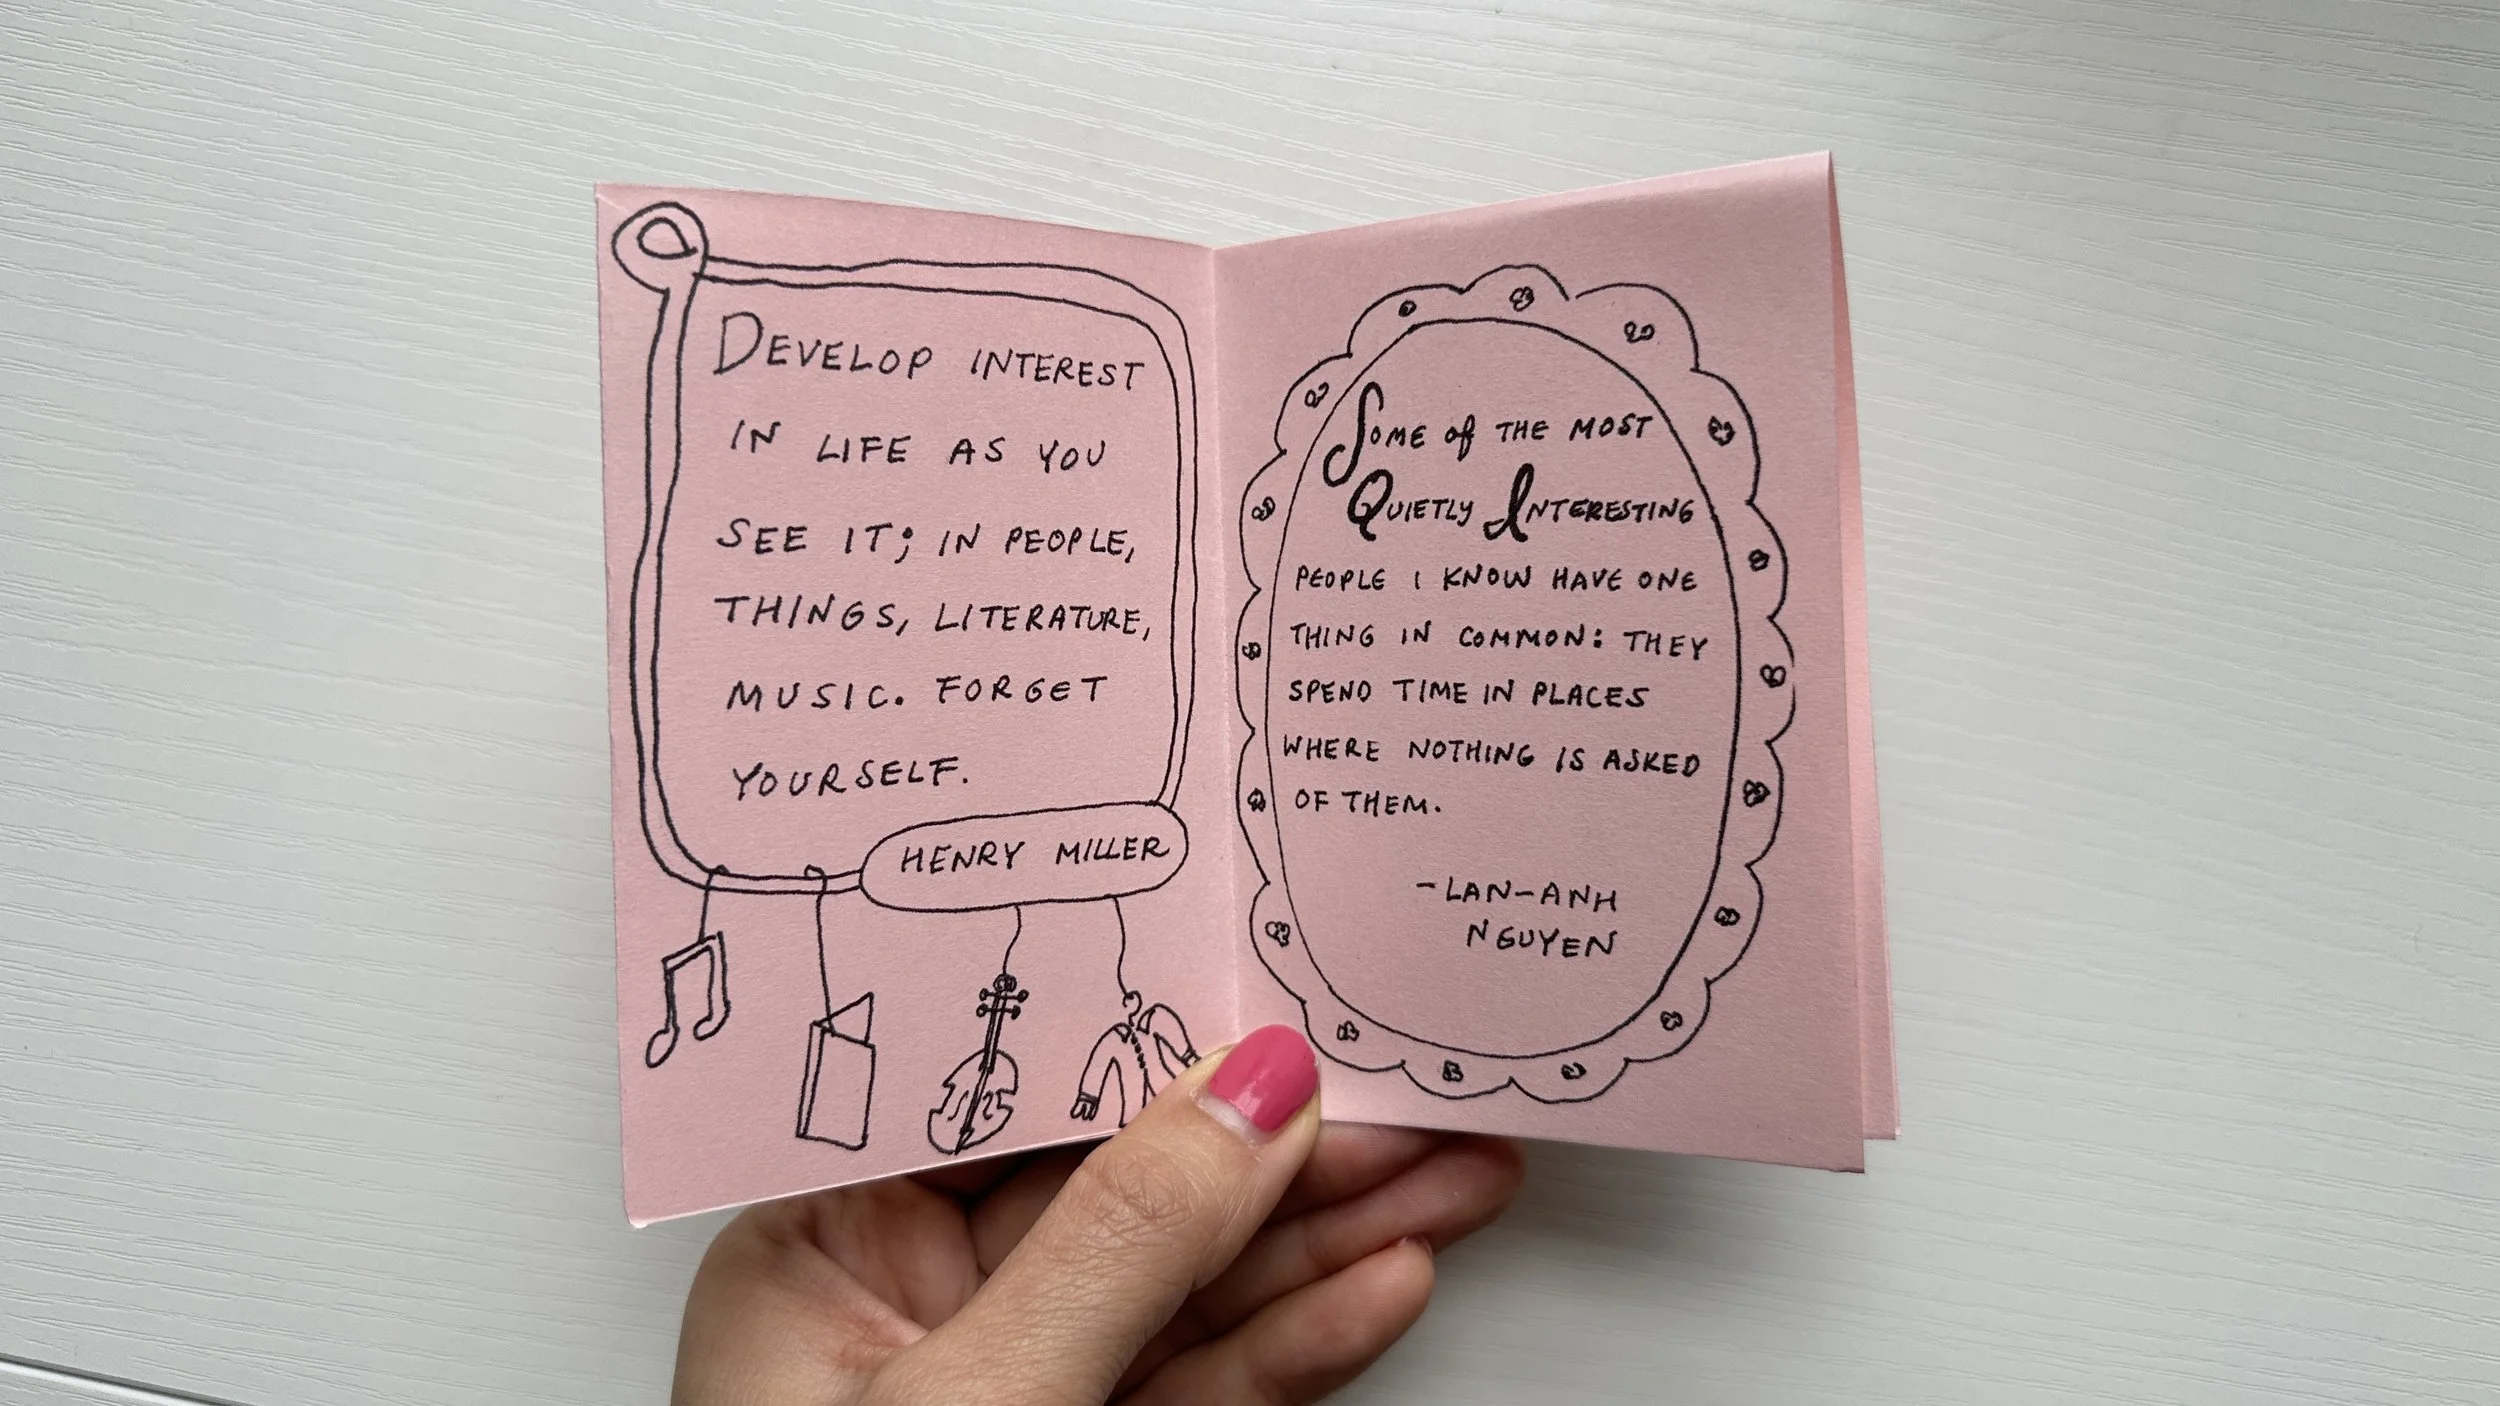 DEVELOP INTEREST
IN LIFE AS YOU
SEE IT; IN PEOPLE,
THINGS, LITERATURE,
MUSIC. FORGET
YOURSELF.
HENRY MILLER
SOME of THE MOST
QUIETLY INTERESTING
PEOPLE I KNOW HAVE ONE
THING IN COMMON: THEY
SPEND TIME IN PLACES
WHERE NOTHING IS ASKED
OF THEM.
-LAN-ANH
NGUYEN